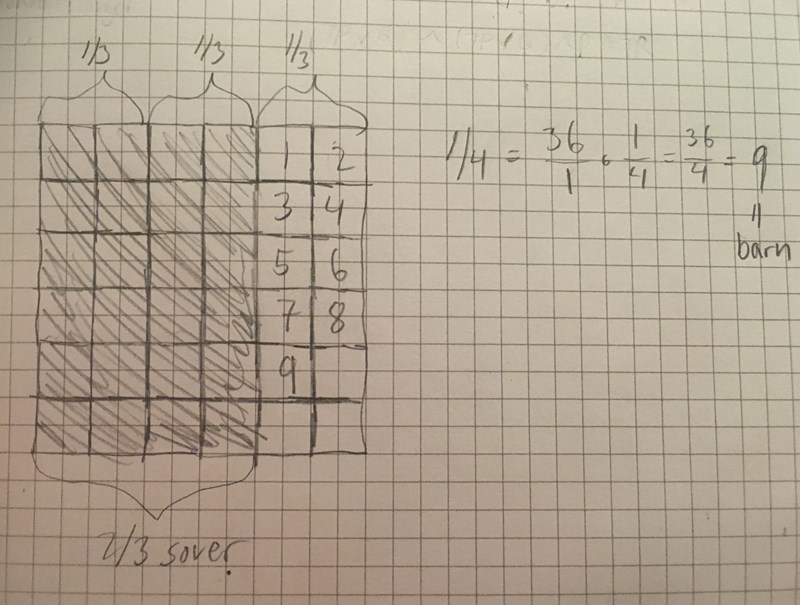 1/3 1/3 1/3
1 2
3 4
5 6
7 8
9
2/3 sover.
1/4 = 36/1 • 1/4 = 36/4 = 9
||
barn